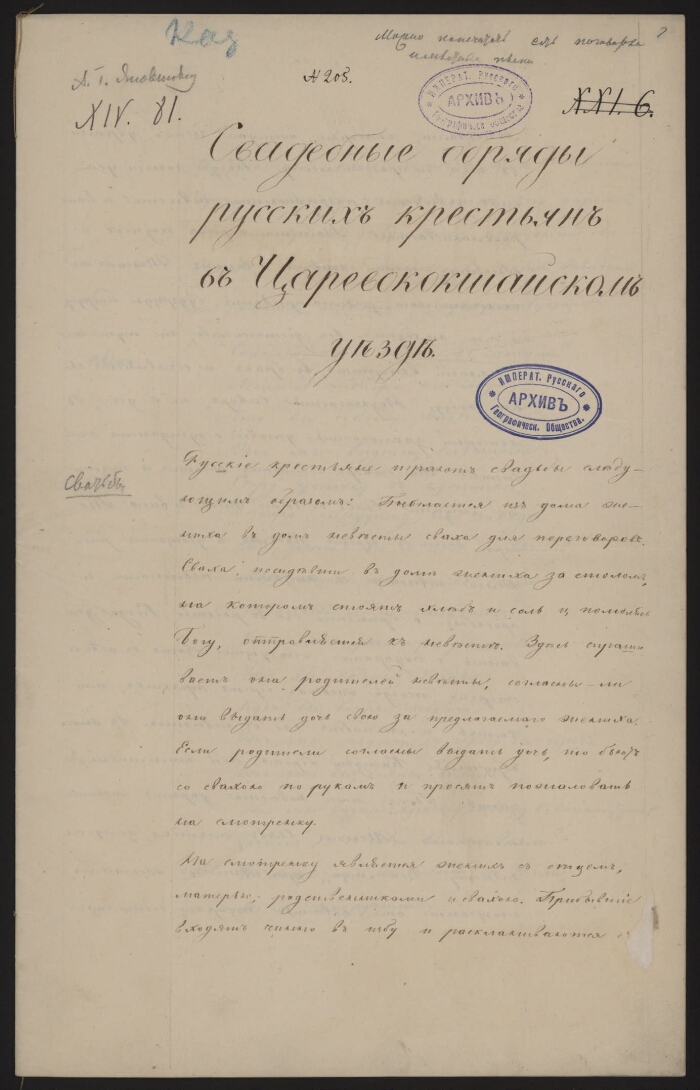 Каз
Можно напечатать
А. І. Яновичъ
№ 205.
XIV. 81.
ИМПЕРАТ. Русскаго
АРХИВЪ
Географическ. Общества
XXI. 6.
Свадебные обряды
русскихъ крестьянъ
въ Царевококшайскомъ
уѣздѣ.
ИМПЕРАТ. Русскаго
АРХИВЪ
Географическ. Общества.
Свадьбы
Русскіе крестьяне играютъ свадьбы слѣду-
ющимъ образомъ: Посылается изъ дома же-
ниха въ домъ невѣсты сваха для переговоровъ.
Сваха, посидѣвши въ домѣ жениха за столомъ,
на которомъ стоятъ хлѣбъ и соль и помолясь
Богу, отправляется къ невѣстѣ. Здѣсь спраши
ваетъ она родителей невѣсты, согласны-ли
они выдать дочь свою за предлагаемаго жениха.
Если родители согласны выдать дочь, то бьютъ
со свахою по рукамъ и просятъ пожаловать
на смотренку.
На смотренку является женихъ съ отцемъ,
матерью, родственниками и свахою. Прибывшіе
входятъ чинно въ избу и раскланиваются съ